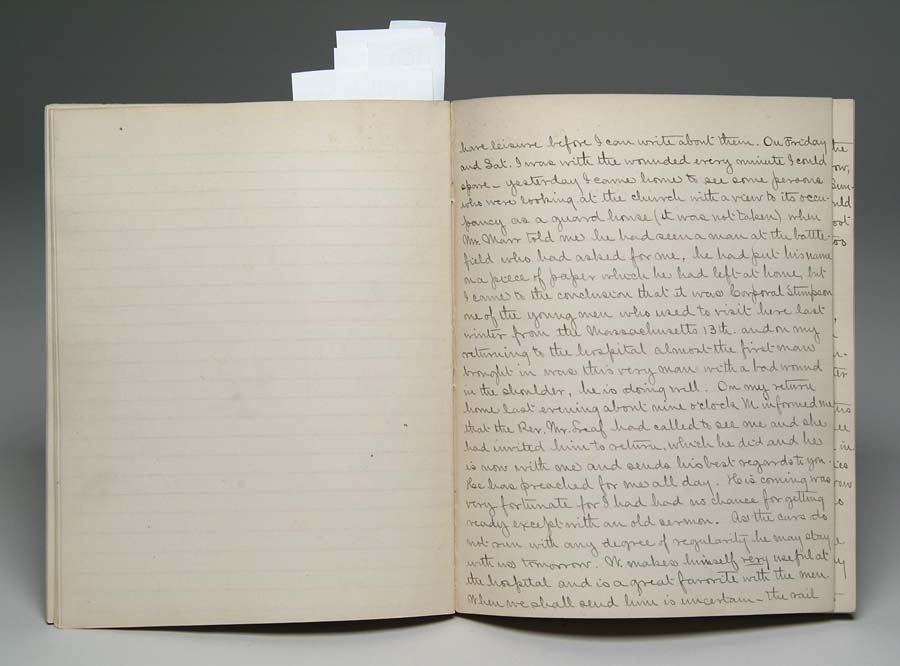 have leisure before I can write about them. On Friday
and Sat. I was with the wounded every minute I could
spare – yesterday I came home to see some persons
who were looking at the church with a view to its occu-
pancy as a guard house (it was not taken) when
Mr. Marr told me he had seen a man at the battle-
field who had asked for me, he had put his name
on a piece of paper which he had left at home, but
I came to the conclusion that it was Corporal Stimpson
one of the young men who used to visit here last
winter from the Massachusetts 13th. and on my
returning to the hospital almost the first man
brought in was this very man with a bad wound
in the shoulder, he is doing well. On my return
home last evening about nine o'clock M informed me
that the Rev. Mr. had called to see me and she
had invited him to return, which he did and he
is now with me and sends his best regards to you.
He has preached for me all day. His coming was
very fortunate for I had had no chance for getting
ready except with an old sermon. As the cars do
not run with any degree of regularity he may stay
with us tomorrow. W. makes himself very useful at
the hospital and is a great favorite with the men
When we shall send him is uncertain – the rail